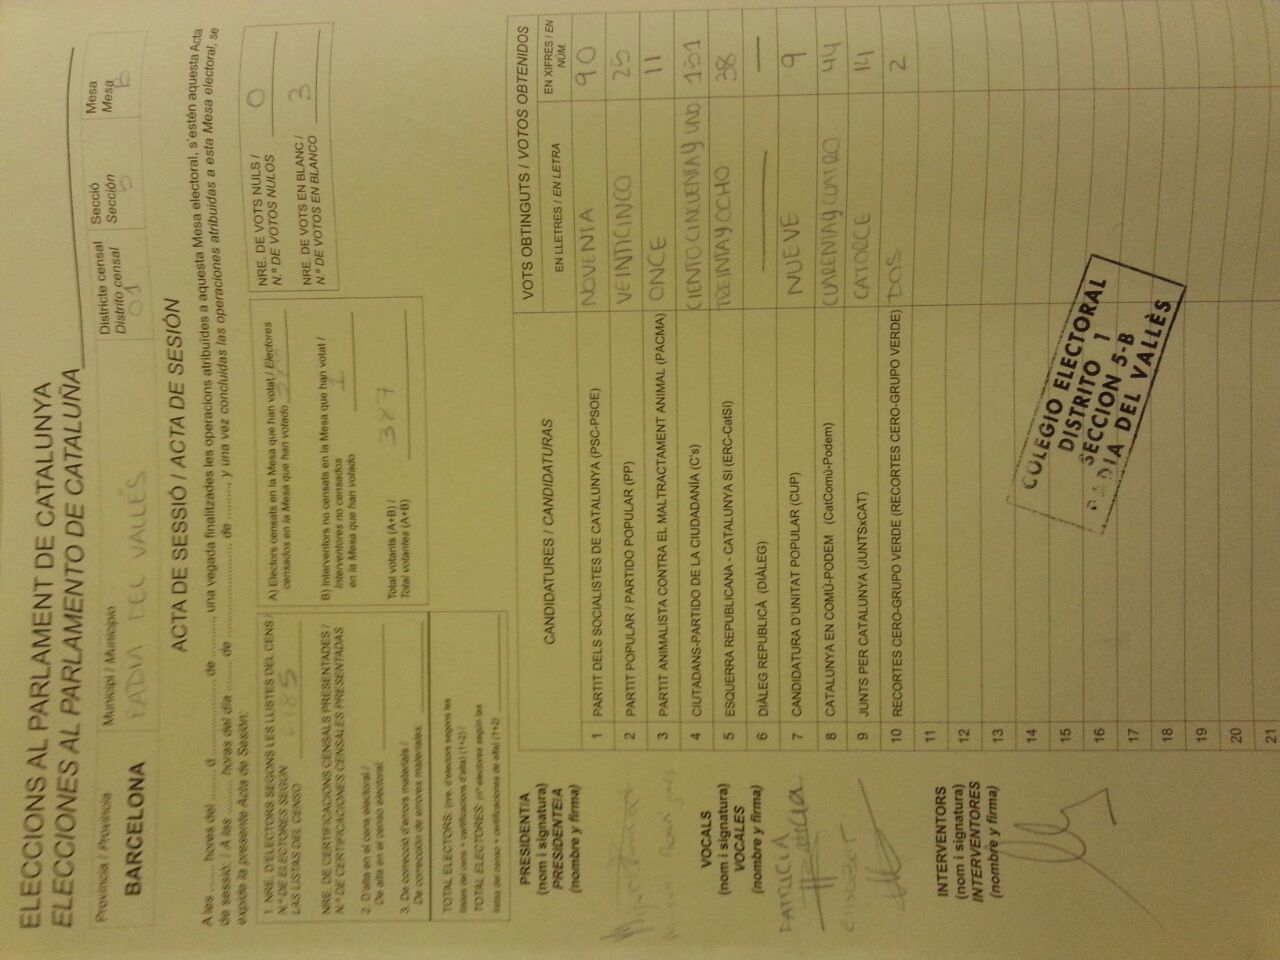 ELECCIONS AL PARLAMENT DE CATALUNYA
ELECCIONES AL PARLAMENTO DE CATALUÑA
Província / Provincia
BARCELONA
Municipi / Municipio
BADIA DEL VALLÉS
Districte censal
Distrito censal
01
Secció
Sección
5
Mesa
Mesa
B
ACTA DE SESSIÓ / ACTA DE SESIÓN
A les ........ hores del ........ d ........................ de ........, una vegada finalitzades les operacions atribuïdes a aquesta Mesa electoral, s'estén aquesta Acta
de sessió. / A las ........ horas del día ........ de ........................ de ........, y una vez concluidas las operaciones atribuidas a esta Mesa electoral, se
expide la presente Acta de Sesión:
1. NRE. D'ELECTORS SEGONS LES LLISTES DEL CENS /
N.º DE ELECTORES SEGÚN
LAS LISTAS DEL CENSO
NRE. DE CERTIFICACIONS CENSALS PRESENTADES /
N.º DE CERTIFICACIONES CENSALES PRESENTADAS
2. D'alta en el cens electoral /
De alta en el censo electoral:
3. De correcció d'errors materials /
De corrección de errores materiales:
TOTAL ELECTORS: (nre. d'electors segons les
llistes del cens + certificacions d'alta) (1+2) /
TOTAL ELECTORES: (nº electores según las
listas del censo + certificaciones de alta) (1+2)
A) Electors censats en la Mesa que han votat / Electores
censados en la Mesa que han votado
B) Interventors no censats en la Mesa que han votat /
Interventores no censados
en la Mesa que han votado
1
Total votants (A+B) /
Total votantes (A+B)
387
NRE. DE VOTS NULS /
N.º DE VOTOS NULOS
0
NRE. DE VOTS EN BLANC /
N.º DE VOTOS EN BLANCO
3
PRESIDENTIA
(nom i signatura)
PRESIDENTE/A
(nombre y firma)
VOCALS
(nom i signatura)
VOCALES
(nombre y firma)
PATRICIA
INTERVENTORS
(nom i signatura)
INTERVENTORES
(nombre y firma)
CANDIDATURES / CANDIDATURAS
VOTS OBTINGUTS / VOTOS OBTENIDOS
EN LLETRES / EN LETRA
EN XIFRES / EN NÚM.
1 PARTIT DELS SOCIALISTES DE CATALUNYA (PSC-PSOE) NOVENTA 90
2 PARTIT POPULAR / PARTIDO POPULAR (PP) VEINTICINCO 25
3 PARTIT ANIMALISTA CONTRA EL MALTRACTAMENT ANIMAL (PACMA) ONCE 11
4 CIUTADANS-PARTIDO DE LA CIUDADANÍA (C's) CIENTO CINCUENTA Y UNO 151
5 ESQUERRA REPUBLICANA - CATALUNYA SÍ (ERC-CatSí) TREINTA Y OCHO 38
6 DIÀLEG REPUBLICÀ (DIÀLEG) — —
7 CANDIDATURA D'UNITAT POPULAR (CUP) NUEVE 9
8 CATALUNYA EN COMÚ-PODEM (CatComú-Podem) CUARENTA Y CUATRO 44
9 JUNTS PER CATALUNYA (JUNTSxCAT) CATORCE 14
10 RECORTES CERO-GRUPO VERDE (RECORTES CERO-GRUPO VERDE) DOS 2
11
12
13
14
15
16
17
18
19
20
21
COLEGIO ELECTORAL
DISTRITO 1
SECCION 5-B
BADIA DEL VALLÈS